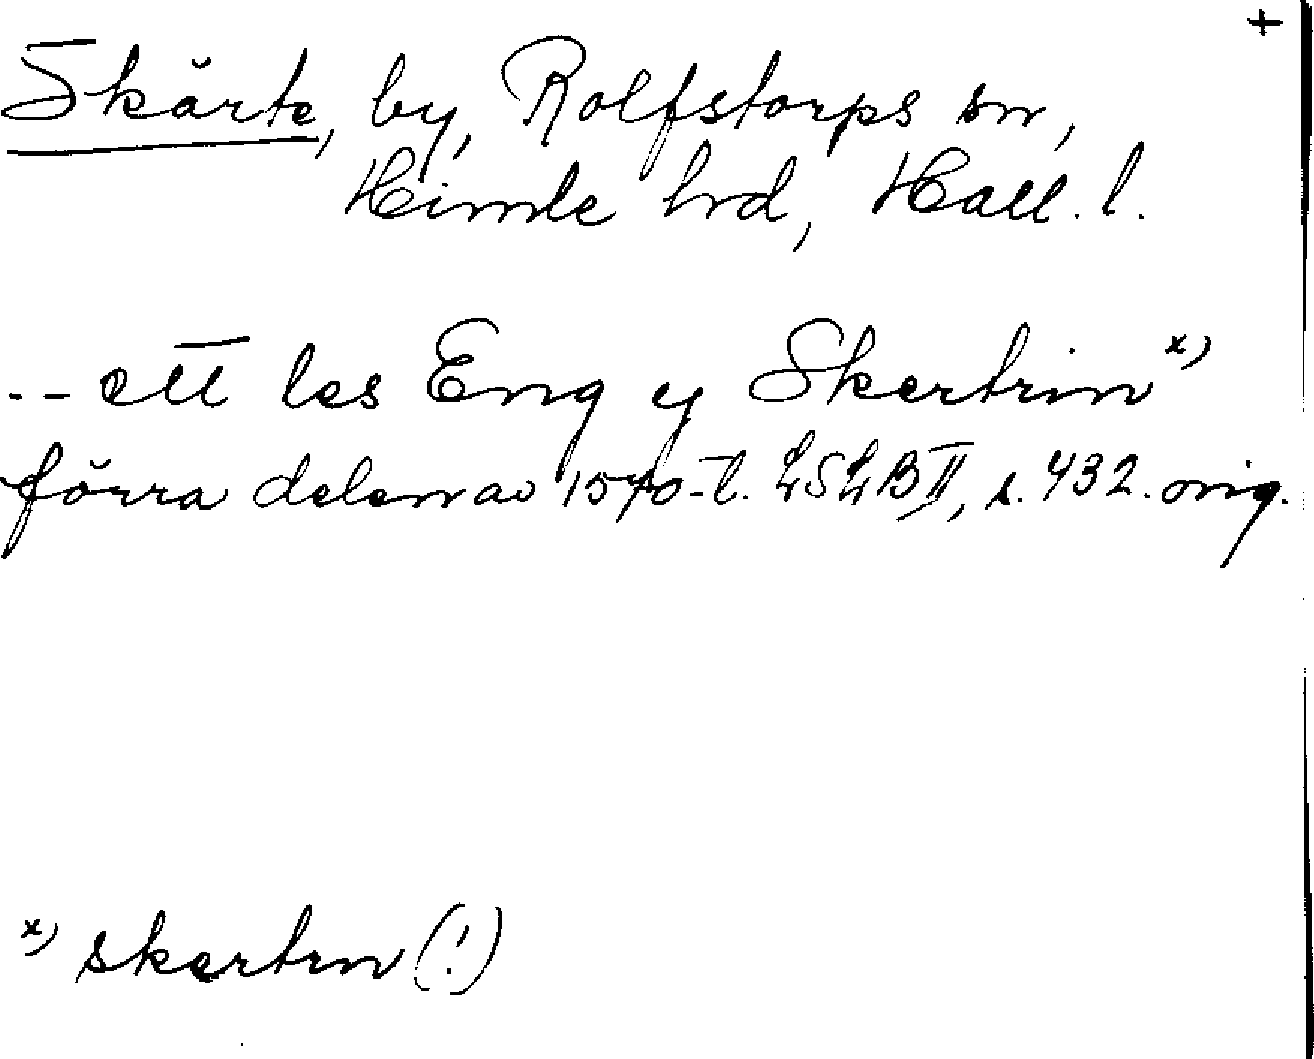 +
Skärte, by, Rolfstorps sn,
Himle hrd, Hall. l.
-- ett les Eng y Skertrin x)
förra delen av 1570-t. LSLB II, s. 432. orig.
x) skertrin (!)